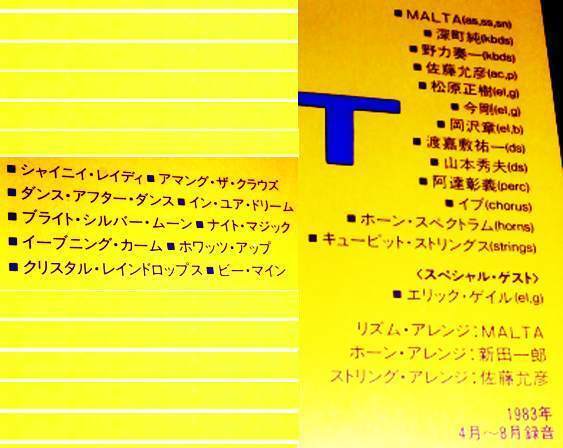 ■ シャイニイ・レイディ ■ アマング・ザ・クラウズ
■ ダンス・アフター・ダンス ■ イン・ユア・ドリーム
■ ブライト・シルバー・ムーン ■ ナイト・マジック
■ イーブニング・カーム ■ ホワッツ・アップ
■ クリスタル・レインドロップス ■ ビー・マイン
■ MALTA(as,ss,sn)
■ 深町純(kbds)
■ 野力奏一(kbds)
■ 佐藤允彦(ac,p)
■ 松原正樹(el,g)
■ 今剛(el,g)
■ 岡沢章(el,b)
■ 渡嘉敷祐一(ds)
■ 山本秀夫(ds)
■ 阿達彰義(perc)
■ イブ(chorus)
■ ホーン・スペクトラム(horns)
■ キューピット・ストリングス(strings)
〈スペシャル・ゲスト〉
■ エリック・ゲイル(el,g)
リズム・アレンジ:MALTA
ホーン・アレンジ:新田一郎
ストリング・アレンジ:佐藤允彦
1983年
4月〜8月録音
T